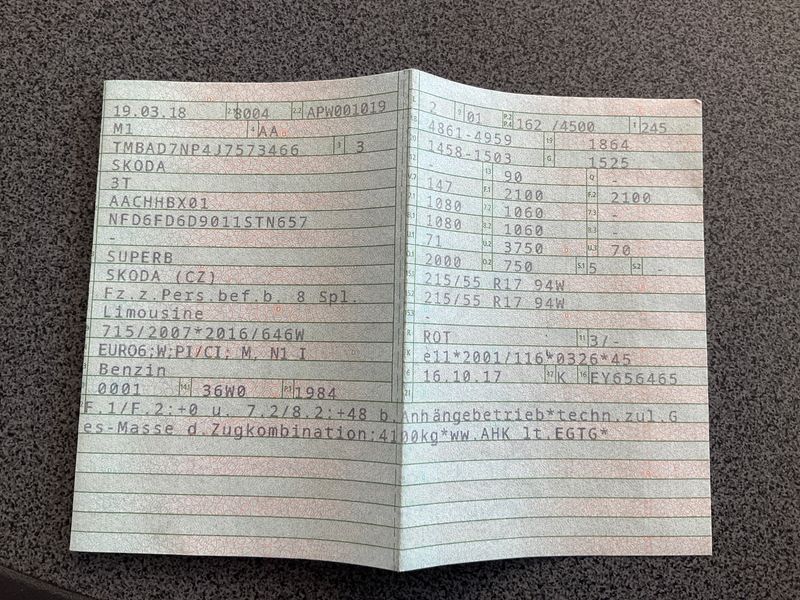 19.03.18 2.1 8004 2.2 APW001019
M1 4 AA
TMBAD7NP4J7573466 3 3
SKODA
3T
AACHHBX01
NFD6FD6D9011STN657
-
SUPERB
SKODA (CZ)
Fz.z.Pers.bef.b. 8 Spl.
Limousine
715/2007*2016/646W
EURO6;W;PI/CI; M, N1 I
Benzin
0001 14.1 36W0 P.1 1984
L 2 9 01 P.2 P.4 162 /4500 T 245
18 4861-4959 19 1864
20 1458-1503 G 1525
12 - 13 90 Q -
V.7 147 F.1 2100 F.2 2100
7.1 1080 7.2 1060 7.3 -
8.1 1080 8.2 1060 8.3 -
U.1 71 U.2 3750 U.3 70
O.1 2000 O.2 750 S.1 5 S.2 -
15.1 215/55 R17 94W
15.2 215/55 R17 94W
15.3 -
R ROT 11 3/-
K e11*2001/116*0326*45
6 16.10.17 17 K 16 EY656465
21
F.1/F.2:+0 u. 7.2/8.2:+48 b.Anhängebetrieb*techn.zul.G
es-Masse d.Zugkombination:4100kg*ww.AHK lt.EGTG*